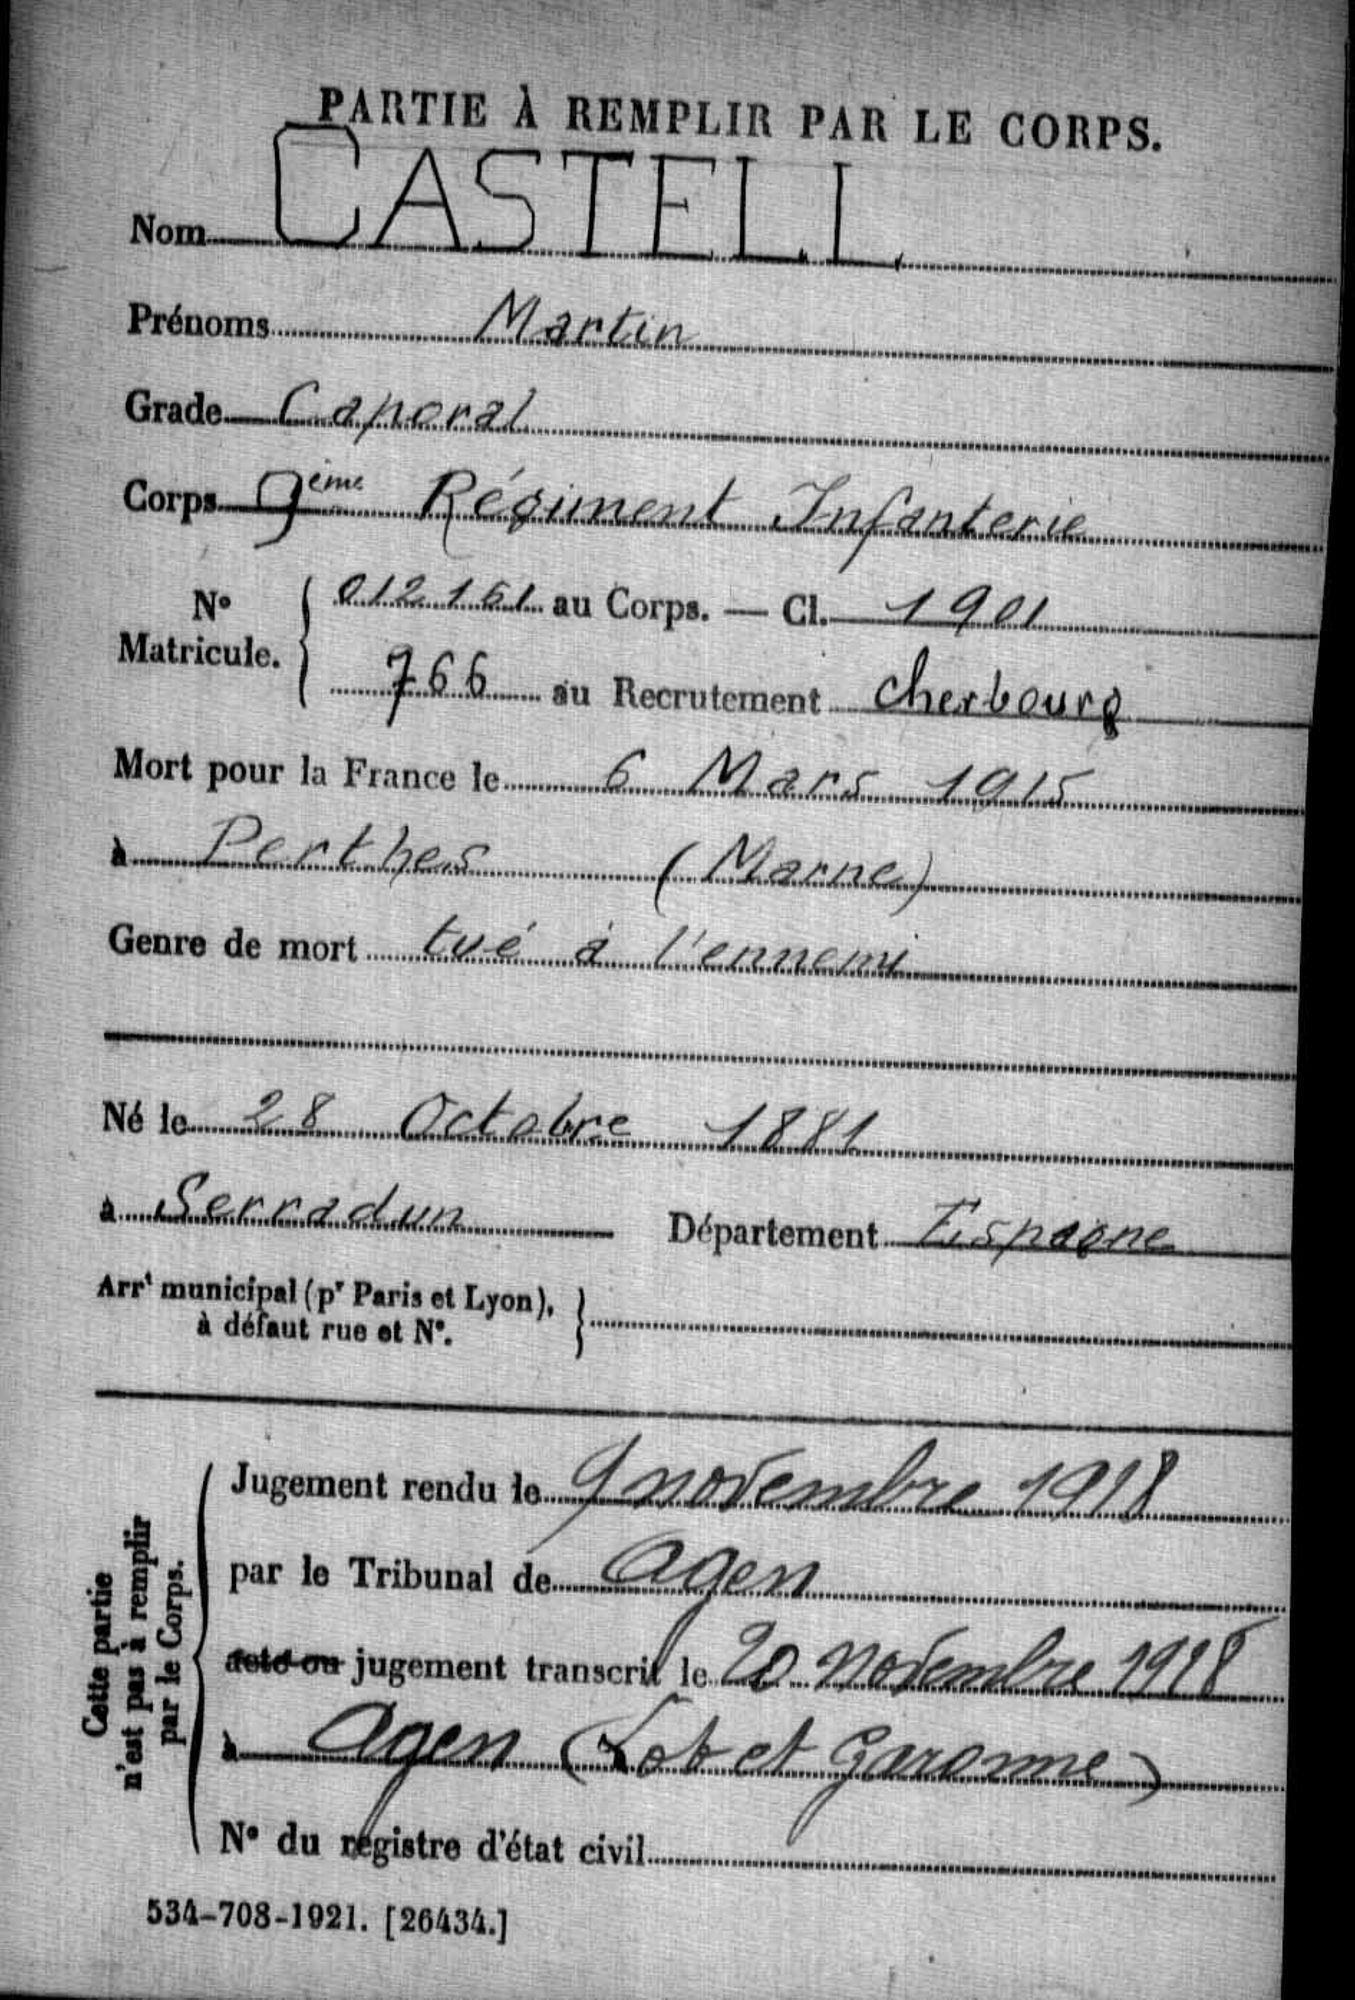 PARTIE À REMPLIR PAR LE CORPS.
Nom CASTELL
Prénoms Martin
Grade Caporal
Corps 9ème Régiment Infanterie
No Matricule. { 012161 au Corps. — Cl. 1901
766 au Recrutement Cherbourg
Mort pour la France le 6 Mars 1915
à Perthes (Marne)
Genre de mort tué à l'ennemi
Né le 28 Octobre 1881
à Serradun Département Espagne
Arrt municipal (pr Paris et Lyon),
à défaut rue et No. }
Cette partie
n'est pas à remplir
par le Corps.
Jugement rendu le 9 novembre 1918
par le Tribunal de Agen
acte ou jugement transcrit le 20 novembre 1918
à Agen (Lot et Garonne)
No du registre d'état civil
534-708-1921. [26434.]